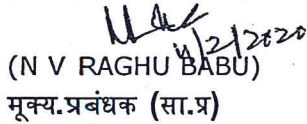 11/2/2020
(N V RAGHU BABU)
मूक्य.प्रबंधक (सा.प्र)